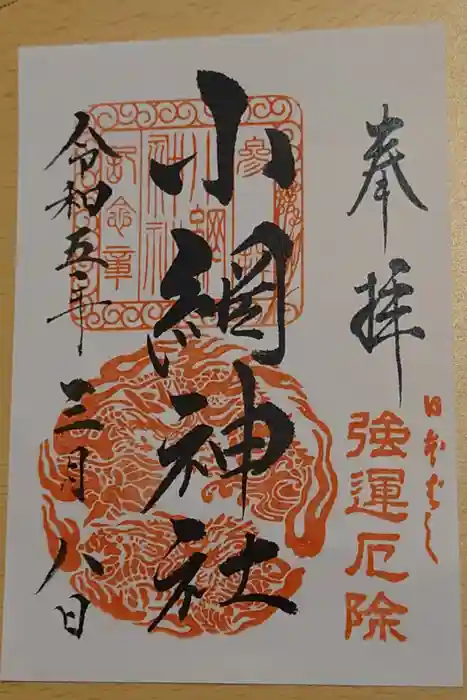 奉拝
日本ばし
強運厄除
小網神社
小網
神社
記念章
令和五年
三月八日